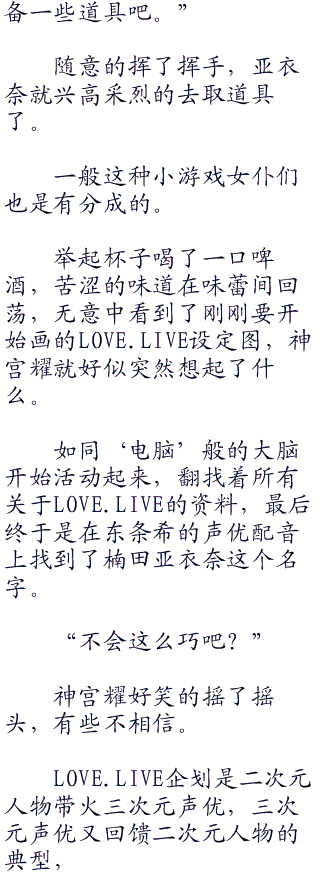 备一些道具吧。”
随意的挥了挥手，亚衣
奈就兴高采烈的去取道具
了。
一般这种小游戏女仆们
也是有分成的。
举起杯子喝了一口啤
酒，苦涩的味道在味蕾间回
荡，无意中看到了刚刚要开
始画的LOVE.LIVE设定图，神
宫耀就好似突然想起了什
么。
如同‘电脑’般的大脑
开始活动起来，翻找着所有
关于LOVE.LIVE的资料，最后
终于是在东条希的声优配音
上找到了楠田亚衣奈这个名
字。
“不会这么巧吧？”
神宫耀好笑的摇了摇
头，有些不相信。
LOVE.LIVE企划是二次元
人物带火三次元声优，三次
元声优又回馈二次元人物的
典型，